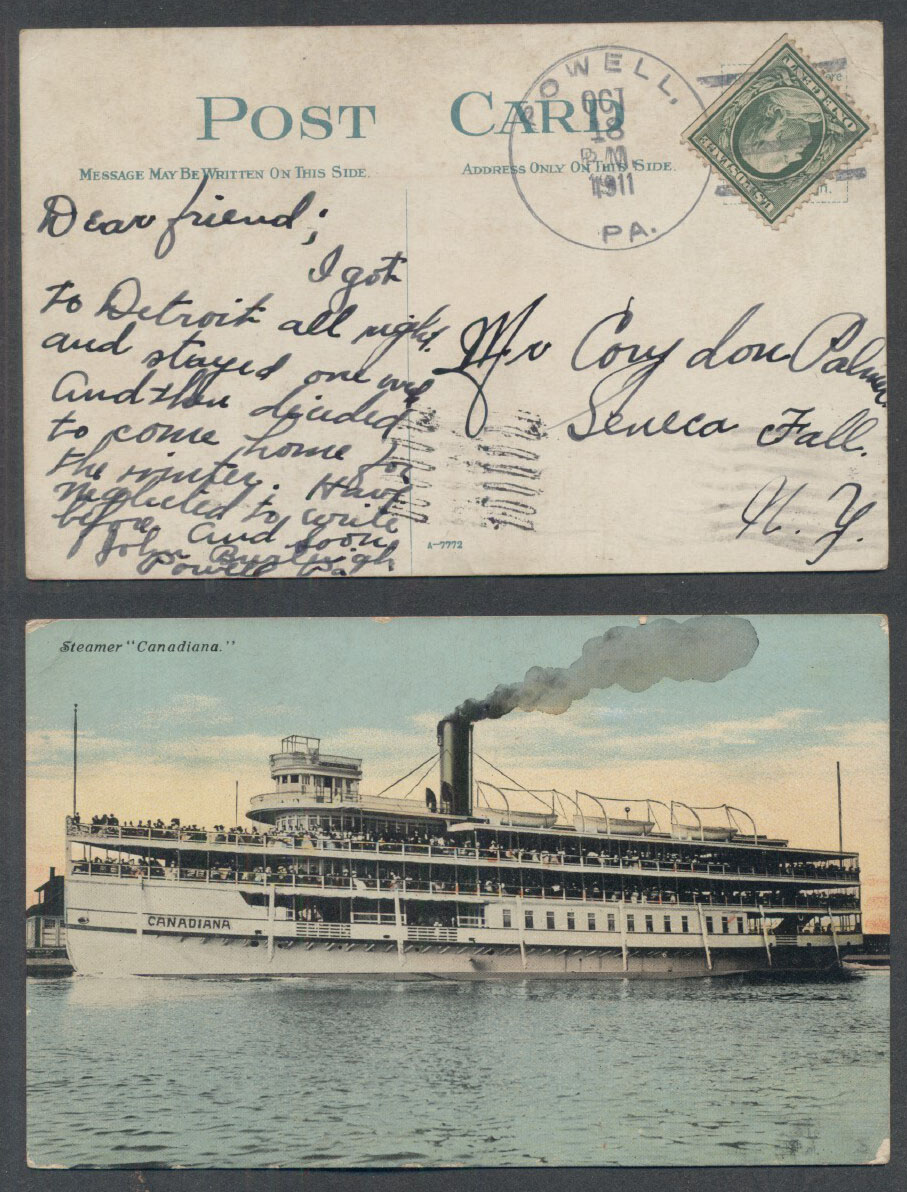 POST CARD
MESSAGE MAY BE WRITTEN ON THIS SIDE.
ADDRESS ONLY ON THIS SIDE.
POWELL,
OCT
18
PM
1911
PA.
Dear friend;
I got
to Detroit all right.
and stayed one
And then decided
to come home for
the winter. Have
neglected to write
before and soon
John
Powell Pa
Mr Corydon Palmer
Seneca Fall.
N. Y.
A-7772
Steamer "Canadiana."
CANADIANA